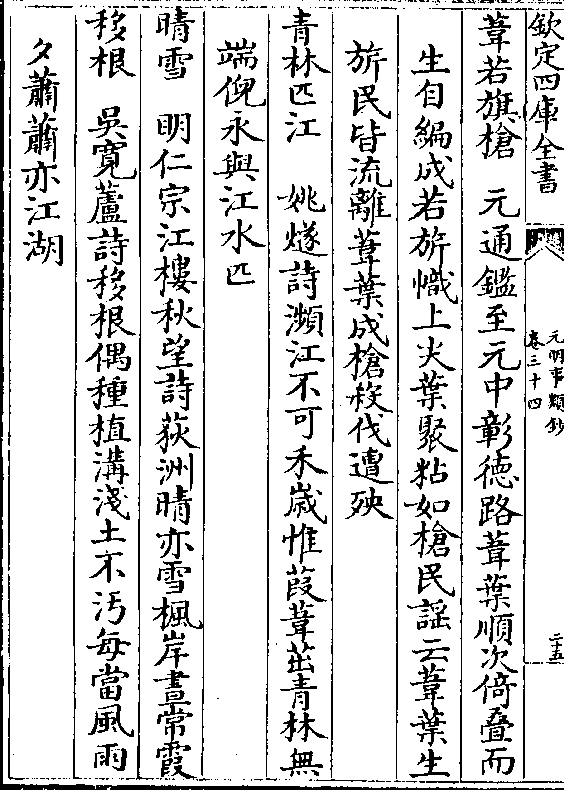 欽定四庫全書
元明事類鈔
卷三十四
二十五
葦若旗槍　元通鑑至元中彰徳路葦葉順次倚疊而
生自編成若旂幟上尖葉聚粘如槍民謡云葦葉生
旂民皆流離葦葉成槍殺伐遭殃
青林匹江　姚燧詩瀕江不可禾歳惟葭葦茁青林無
端倪永與江水匹
晴雪　明仁宗江樓秋望詩荻洲晴亦雪楓岸晝常霞
移根　吳寛蘆詩移根偶種植溝淺土不汚每當風雨
夕蕭蕭亦江湖